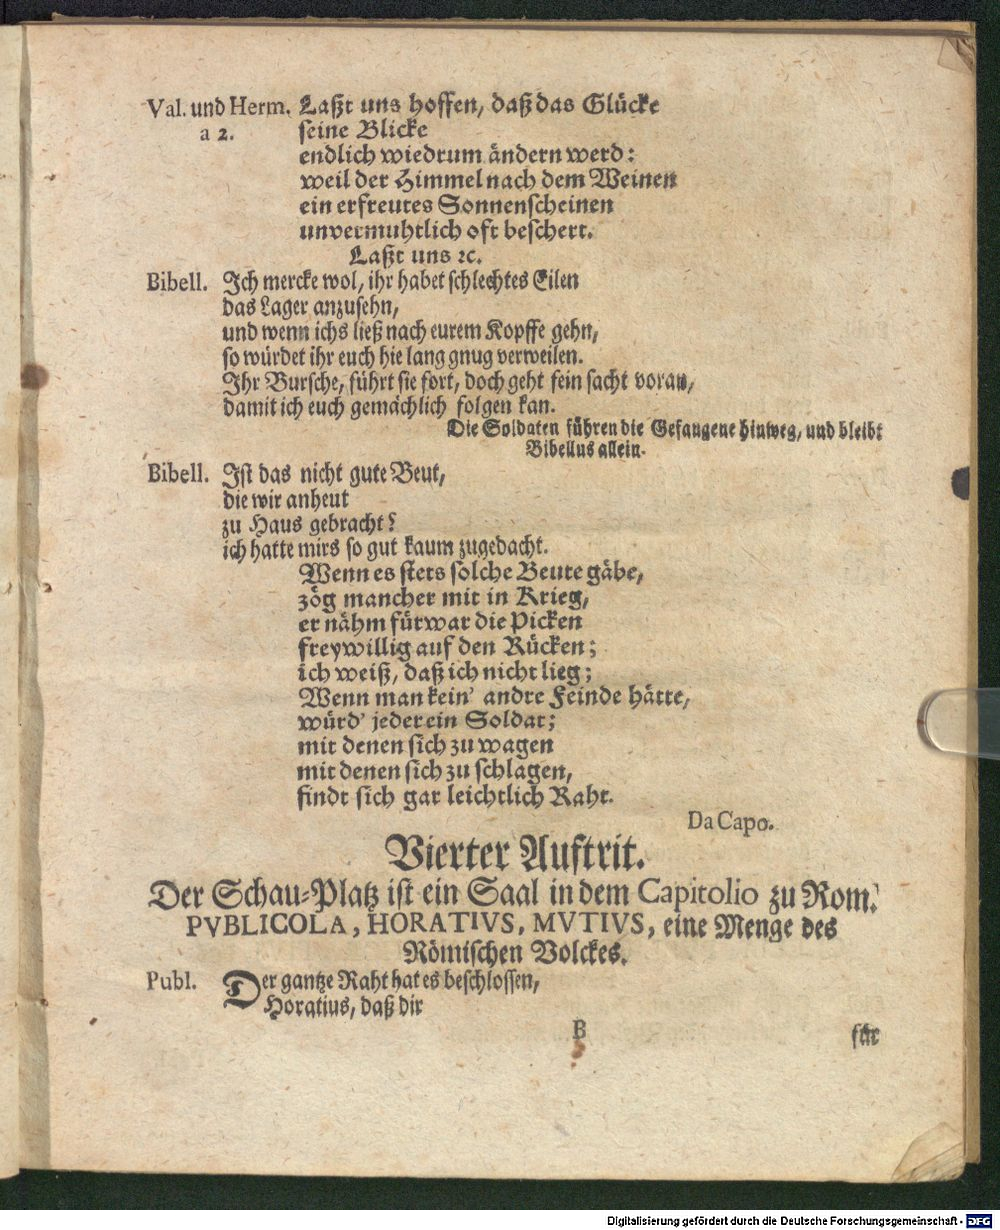 Val. und Herm. Laßt uns hoffen, daß das Glücke
a 2. seine Blicke
endlich wiedrum ändern werd:
weil der Himmel nach dem Weinen
ein erfreutes Sonnenscheinen
unvermuhtlich oft beschert.
Laßt uns ꝛc.
Bibell. Ich mercke wol, ihr habet schlechtes Eilen
das Lager anzusehn,
und wenn ichs ließ nach eurem Kopffe gehn,
so würdet ihr euch hie lang gnug verweilen.
Ihr Bursche, führt sie fort, doch geht fein sacht voran,
damit ich euch gemächlich folgen kan.
Die Soldaten führen die Gefangene hinweg, und bleibt
Bibellus allein.
Bibell. Ist das nicht gute Beut,
die wir anheut
zu Haus gebracht?
ich hatte mirs so gut kaum zugedacht.
Wenn es stets solche Beute gäbe,
zög mancher mit in Krieg,
er nähm fürwar die Picken
freywillig auf den Rücken;
ich weiß, daß ich nicht lieg;
Wenn man kein' andre Feinde hätte,
würd' jeder ein Soldat;
mit denen sich zu wagen
mit denen sich zu schlagen,
findt sich gar leichtlich Raht.
Da Capo.
Vierter Auftrit.
Der Schau-Platz ist ein Saal in dem Capitolio zu Rom.
PVBLICOLA, HORATIVS, MVTIVS, eine Menge des
Römischen Volckes.
Publ. Der gantze Raht hat es beschlossen,
Horatius, daß dir
B für
Digitalisierung gefördert durch die Deutsche Forschungsgemeinschaft - DFG